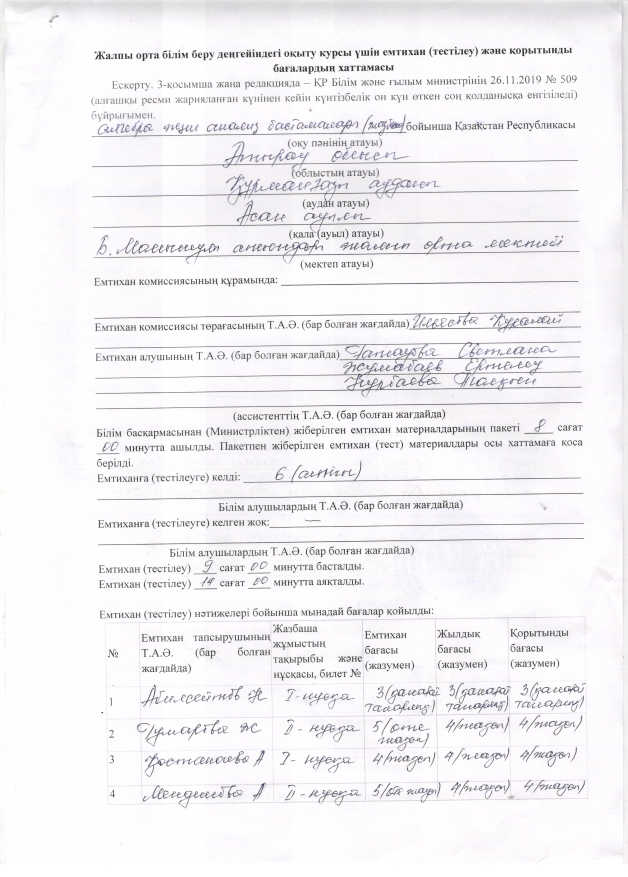 Жалпы орта білім беру деңгейіндегі оқыту курсы үшін емтихан (тестілеу) және қорытынды
бағалардың хаттамасы
Ескерту. 3-қосымша жаңа редакцияда – ҚР Білім және ғылым министрінің 26.11.2019 № 509
(алғашқы ресми жарияланған күнінен кейін күнтізбелік он күн өткен соң қолданысқа енгізіледі)
бұйрығымен.
Алгебра және анализ бастамалары (жазбаша) бойынша Қазақстан Республикасы
(оқу пәнінің атауы)
Атырау облысы
(облыстың атауы)
Құрманғазы ауданы
(аудан атауы)
Асан ауылы
(қала (ауыл) атауы)
жалпы орта мектебі
(мектеп атауы)
Емтихан комиссиясының құрамында:
Емтихан комиссиясы төрағасының Т.А.Ә. (бар болған жағдайда)
Емтихан алушының Т.А.Ә. (бар болған жағдайда) Светлана
Жумабаев
Нурбаева
(ассистенттің Т.А.Ә. (бар болған жағдайда)
Білім басқармасынан (Министрліктен) жіберілген емтихан материалдарының пакеті 8 сағат
00 минутта ашылды. Пакетпен жіберілген емтихан (тест) материалдары осы хаттамаға қоса
берілді.
Емтиханға (тестілеуге) келді: 6 (алты)
Білім алушылардың Т.А.Ә. (бар болған жағдайда)
Емтиханға (тестілеуге) келген жоқ: —
Білім алушылардың Т.А.Ә. (бар болған жағдайда)
Емтихан (тестілеу) 9 сағат 00 минутта басталды.
Емтихан (тестілеу) 14 сағат 00 минутта аяқталды.
Емтихан (тестілеу) нәтижелері бойынша мынадай бағалар қойылды:
№ Емтихан тапсырушының Т.А.Ә. (бар болған жағдайда) Жазбаша жұмыстың тақырыбы және нұсқасы, билет № Емтихан бағасы (жазумен) Жылдық бағасы (жазумен) Қорытынды бағасы (жазумен)
1 І-нұсқа 3 (қанағаттанарлық) 3 (қанағаттанарлық) 3 (қанағаттанарлық)
2 Гумарова Ж ІІ-нұсқа 5 (өте жақсы) 4 (жақсы) 4 (жақсы)
3 І-нұсқа 4 (жақсы) 4 (жақсы) 4 (жақсы)
4 А ІІ-нұсқа 5 (өте жақсы) 4 (жақсы) 4 (жақсы)